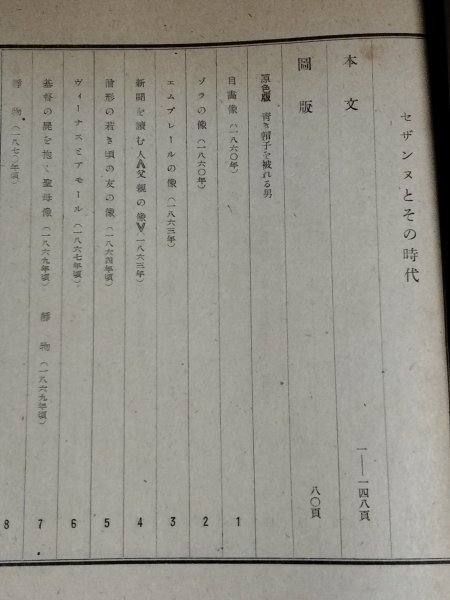 セザンヌとその時代
本文 一――一四八頁
圖版 八〇頁
原色版 青き帽子を被れる男
自畫像（一八六〇年） 1
ゾラの像（一八六〇年） 2
エムプレールの像（一八六三年） 3
新聞を讀む人《父親の像》（一八六三年） 4
僧形の若き頃の友の像（一八六四年頃） 5
ヴィーナスとアモール（一八六七年頃） 6
基督の屍を抱く聖母像（一八六九年頃） 靜物（一八六九年頃） 7
靜物（一八七〇年頃） 8